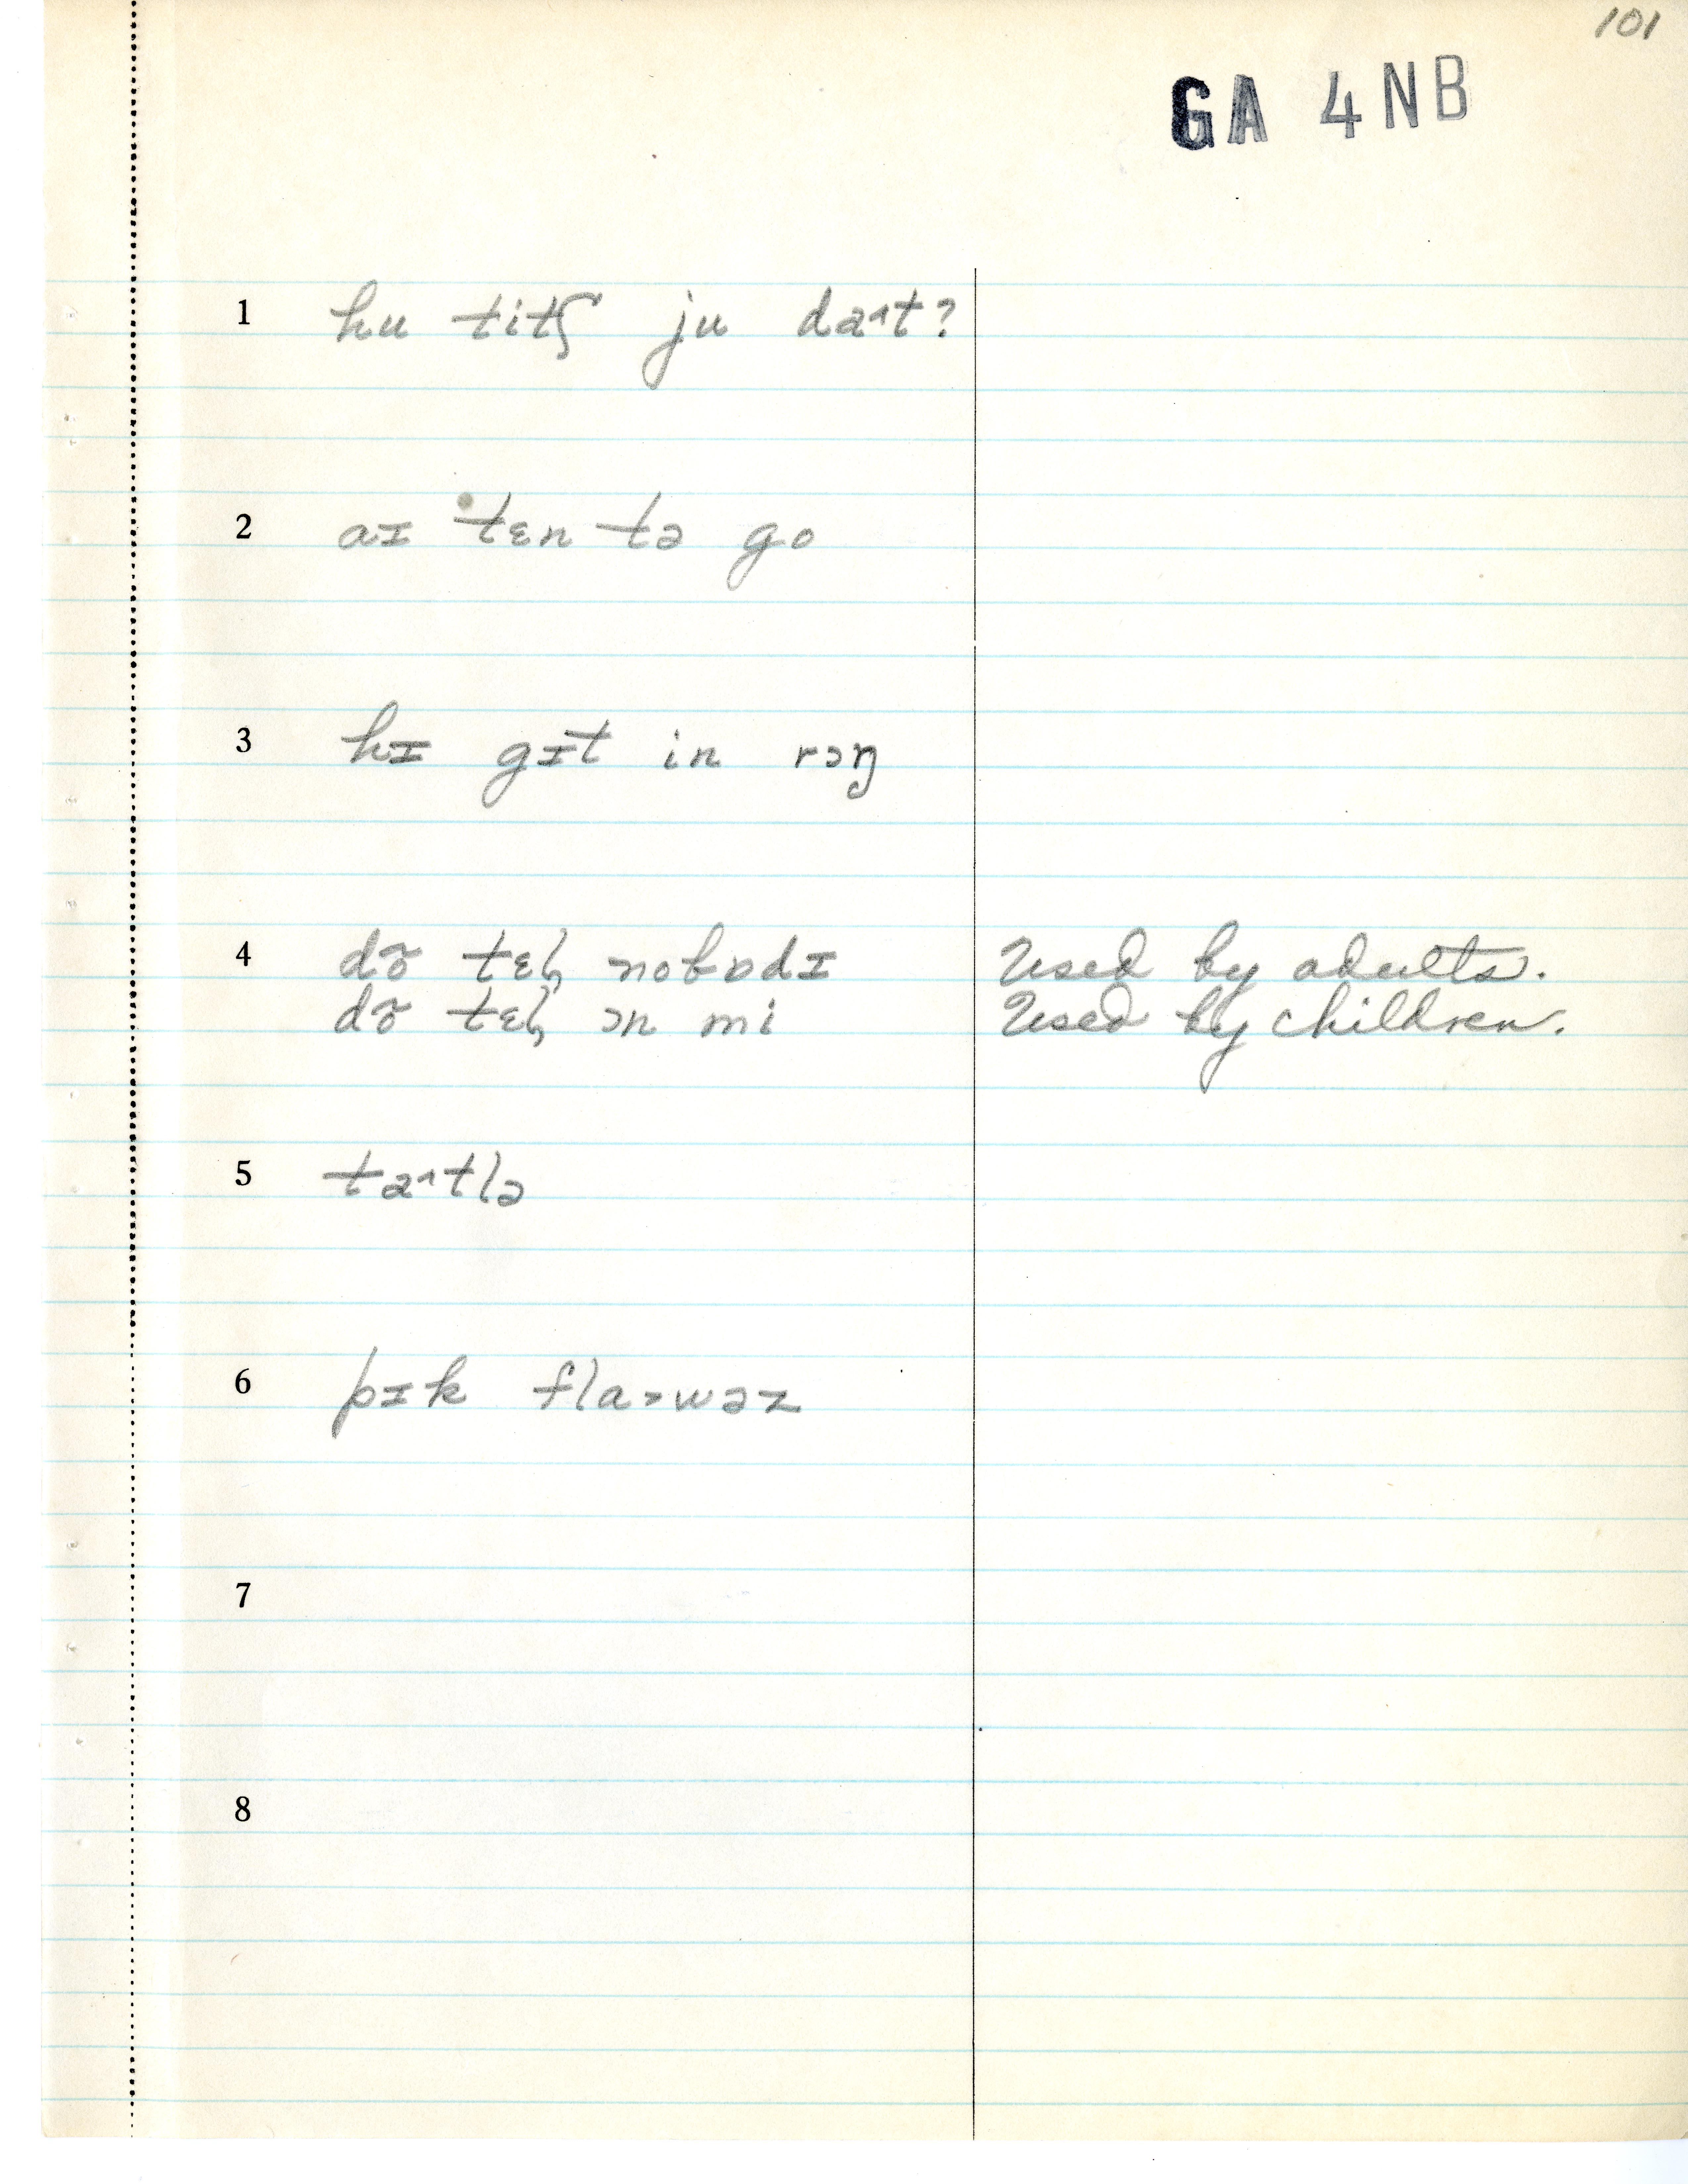 101
GA 4NB
1 hu titʃ ju da˄t?
2 aɪ tɛn tə go
3 hɪ gɪt in rɔŋ
4 dõ tɛl̦ nobɒdɪ Used by adults.
dõ tɛl̦ ɔn mi Used by children.
5 ta˄tlə
6 pɪk fla˃wəz
7
8